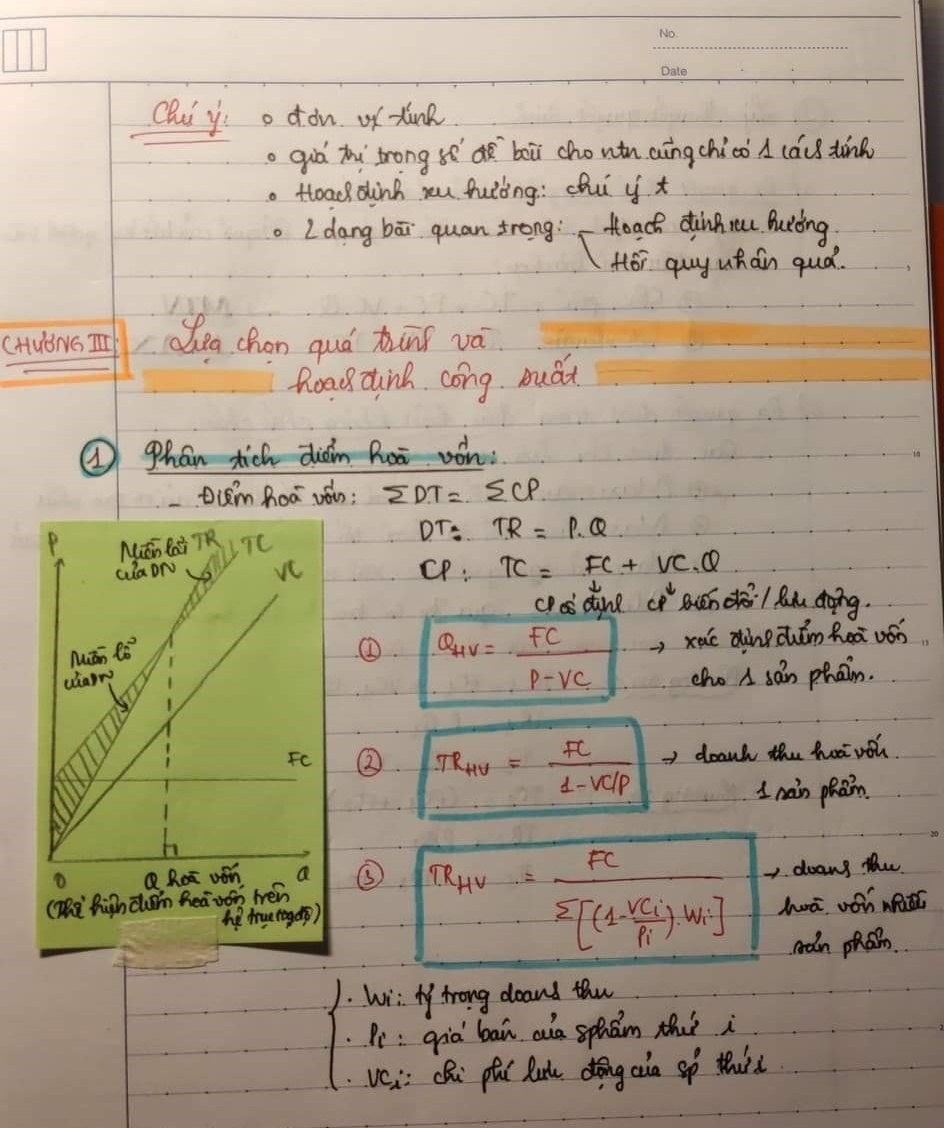 No.
Date
Chú ý: o đơn vị tính
o giá trị trọng số đề bài cho ntn cũng chỉ có 1 cách tính
o Hoạch định xu hướng: chú ý t
o 2 dạng bài quan trọng: - Hoạch định xu hướng
\ Hồi quy nhân quả.
CHƯƠNG III: Lựa chọn quá trình và
hoạch định công suất
① Phân tích điểm hoà vốn:
- Điểm hoà vốn: ΣDT = ΣCP.
DT: TR = P.Q
CP: TC = FC + VC.Q
CP cố định CP biến đổi / lưu động.
① Q_HV = FC / (P-VC) → xác định điểm hoà vốn
cho 1 sản phẩm.
② TR_HV = FC / (1-VC/P) → doanh thu hoà vốn
1 sản phẩm.
③ TR_HV = FC / Σ[(1-VCi/Pi).Wi] → doanh thu
hoà vốn nhiều
sản phẩm.
P
Miền lãi TR TC
của DN
VC
Miền lỗ
của DN
FC
0 Q hoà vốn Q
(Thể hiện điểm hoà vốn trên
hệ trục tọa độ)
. Wi: tỷ trọng doanh thu
. Pi: giá bán của sphẩm thứ i
. VCi: chi phí lưu động của sp thứ i
18
20